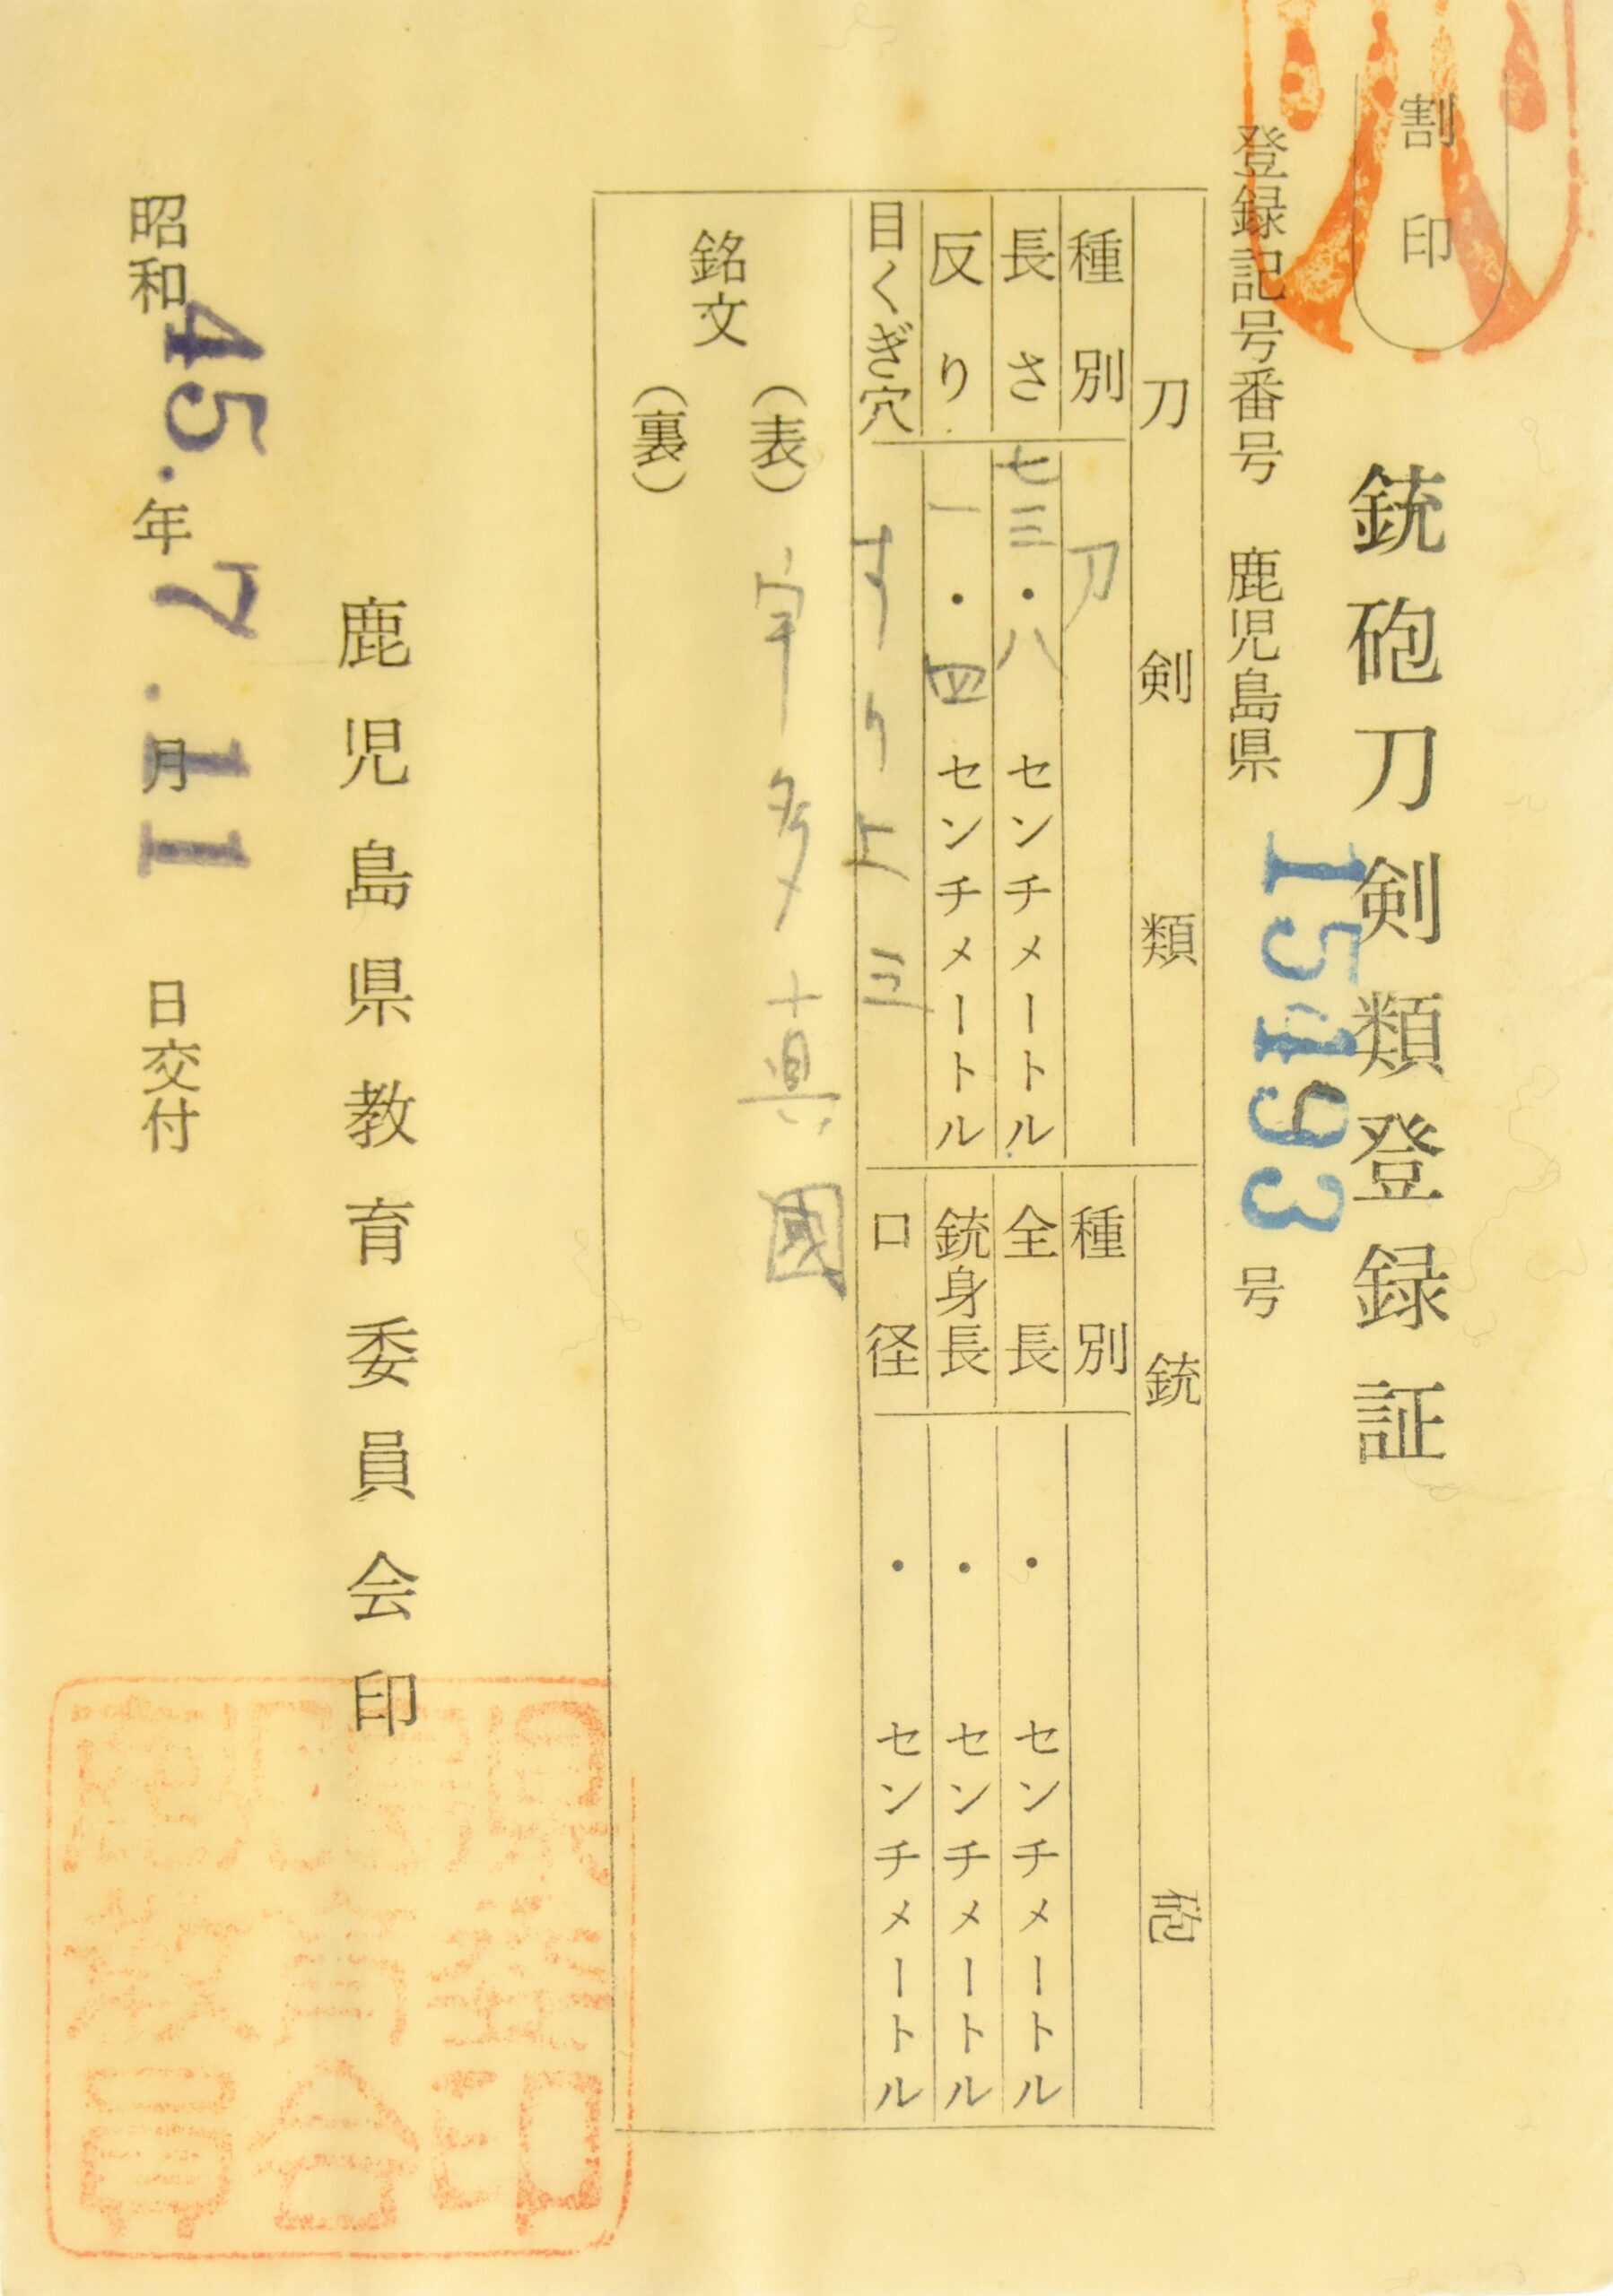 割印
銃砲刀剣類登録証
登録記号番号 鹿児島県 15193 号
刀剣類
種別 刀
長さ 七三・八 センチメートル
反り 一・四 センチメートル
目くぎ穴 すり上 三
銃砲
種別
全長 ・ センチメートル
銃身長 ・ センチメートル
口径 ・ センチメートル
銘文
(表) 宇多真國
(裏)
鹿児島県教育委員会印
昭和45.年7.月11日交付